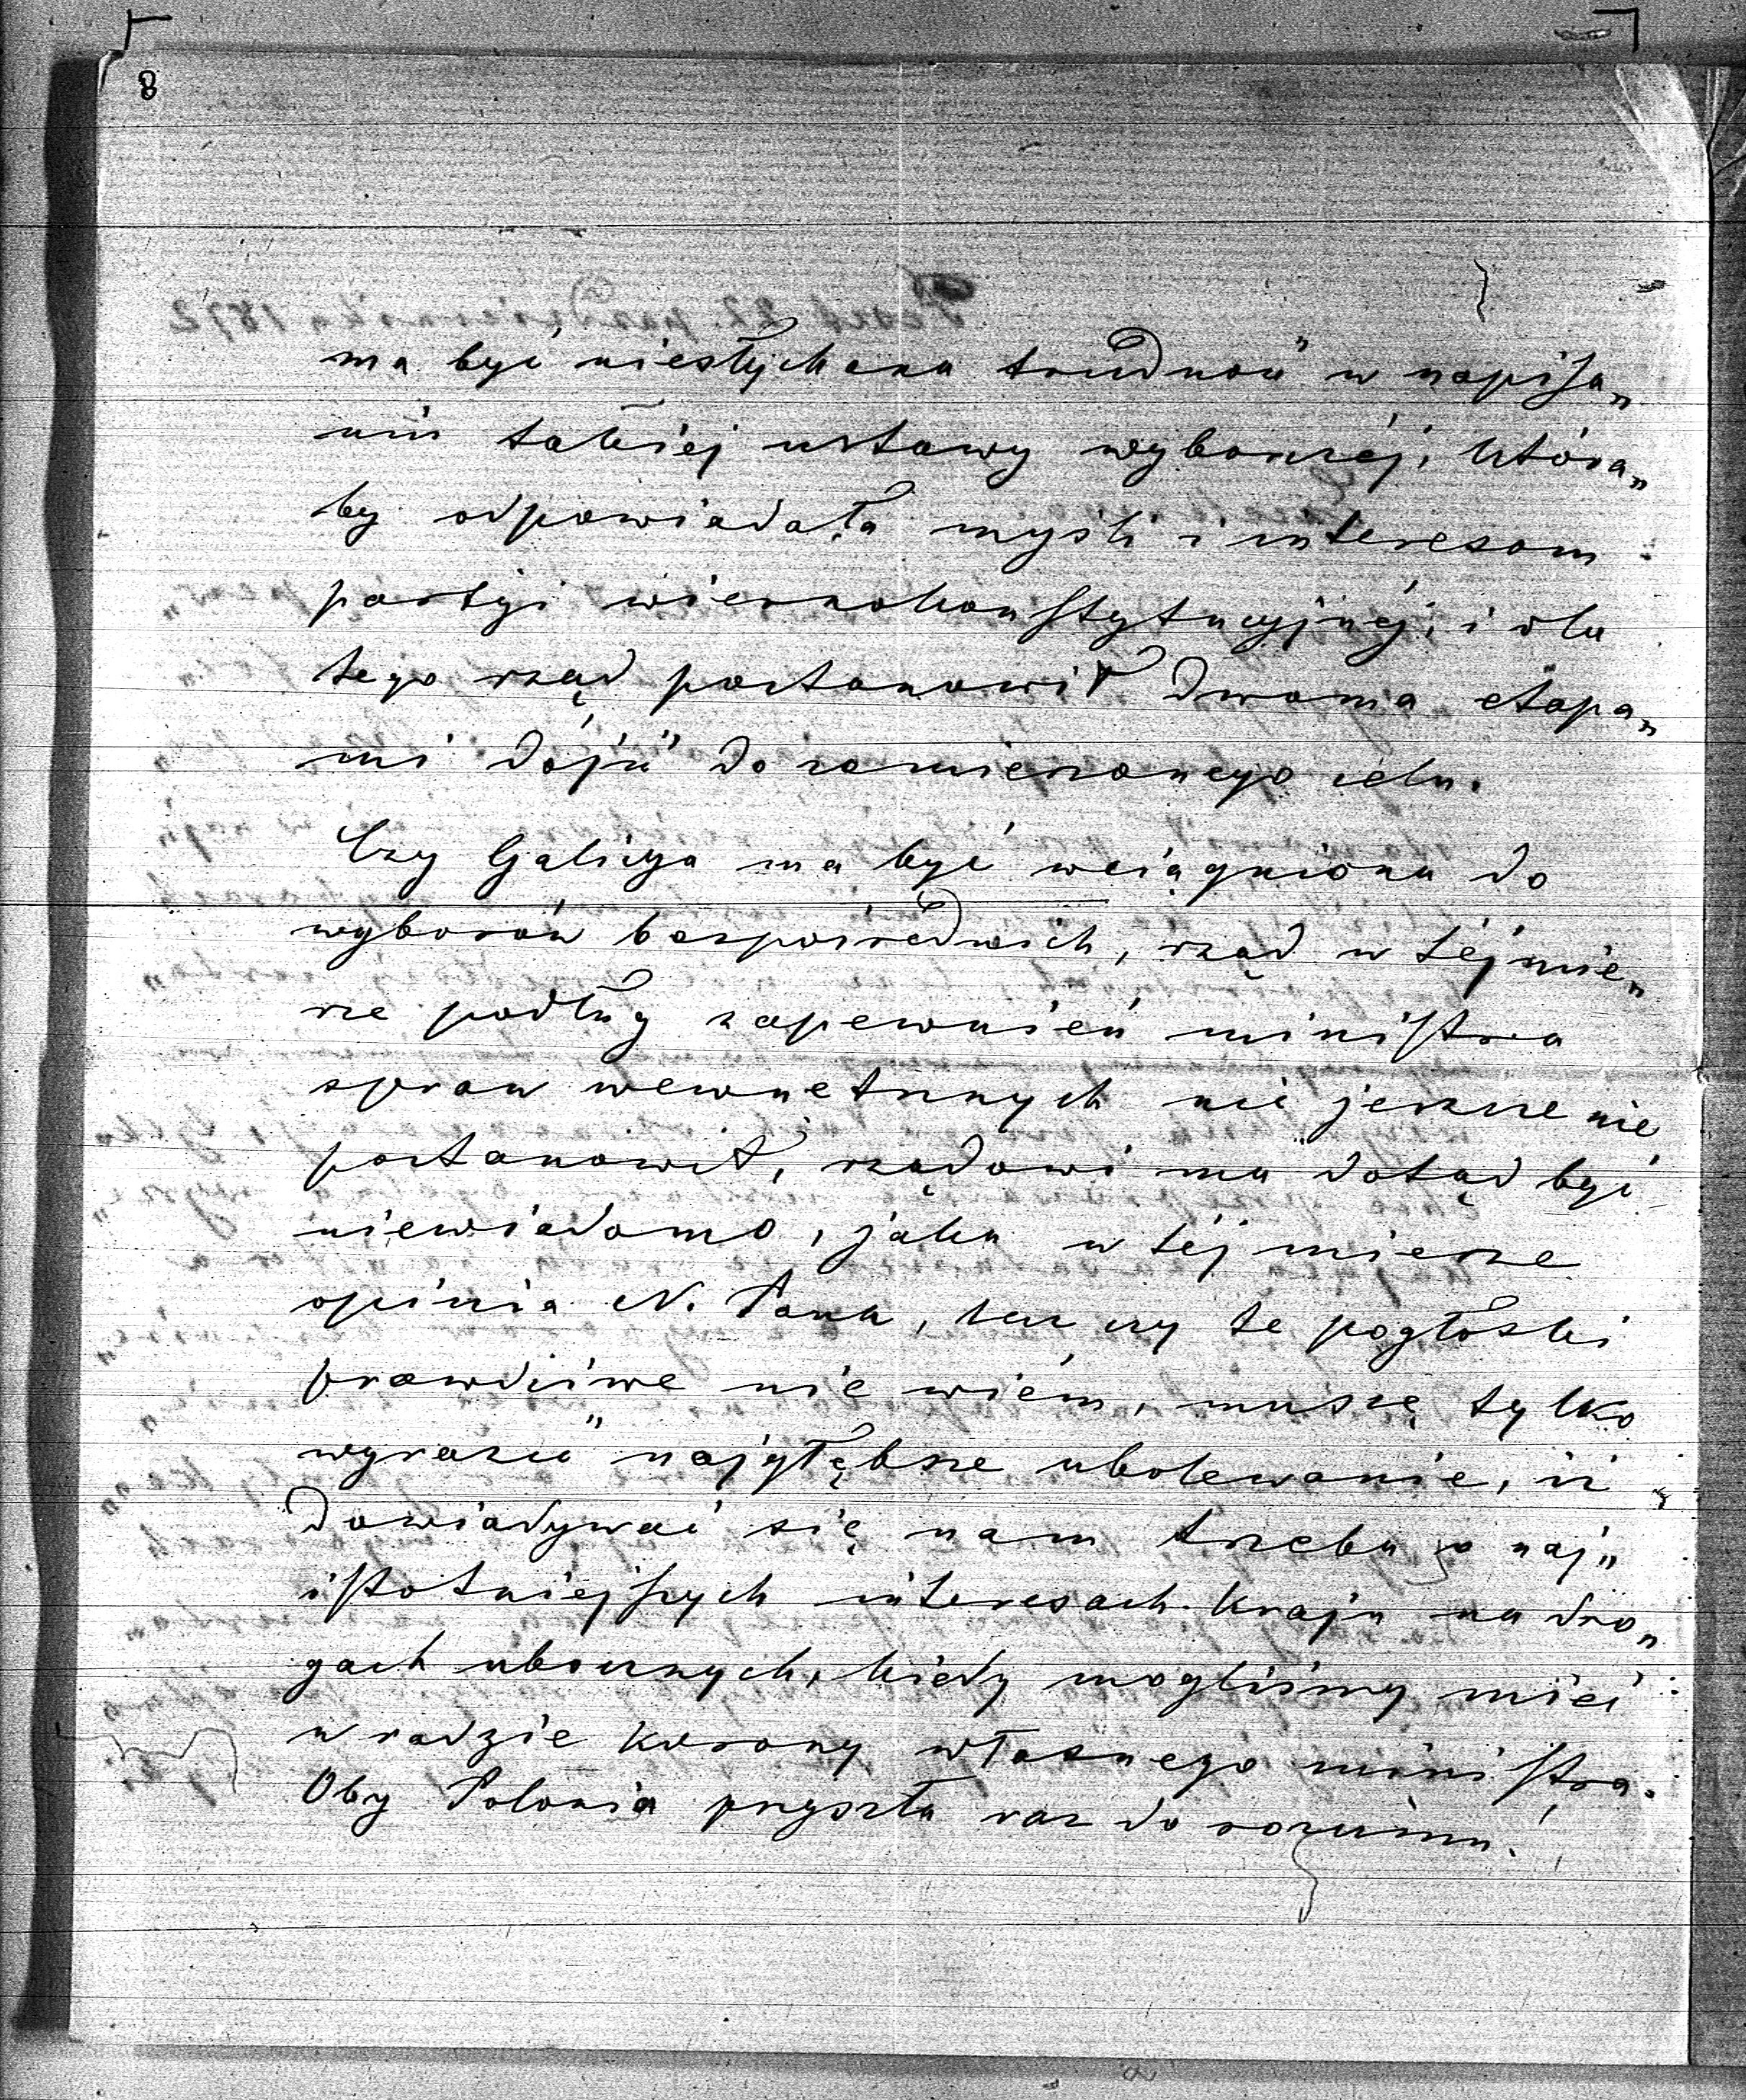 8
ma być niesłychana trudność w napisa„
niu takiej ustawy wyborczéj, która„
by odpowiadała myśli i interesom
partyi wiernokonstytucyjnéj, i dla
tego rząd postanowił dwoma etapa„
mi dójść do zamierzonego celu.
Czy Galicya ma być wciągniona do
wyborów bezpośrednich, rząd w téj mie„
rze podług zapewnień ministra
spraw wewnetrznych nic jeszcze nie
postanowił, rządowi ma dotąd być
niewiadomo, jaka w téj mierze
opinia N. Pana, lecz czy te pogłoski
prawdziwe nie wiém, muszę tylko
wyrazić najgłębsze ubolewanie, iż
dowiadywać się nam trzeba o naj„
istotniejszych interesach kraju na dro„
gach ubocznych, kiedy mogliśmy mieć
w radzie korony własnego ministra.
Oby Polonia przyszła raz do rozumu!